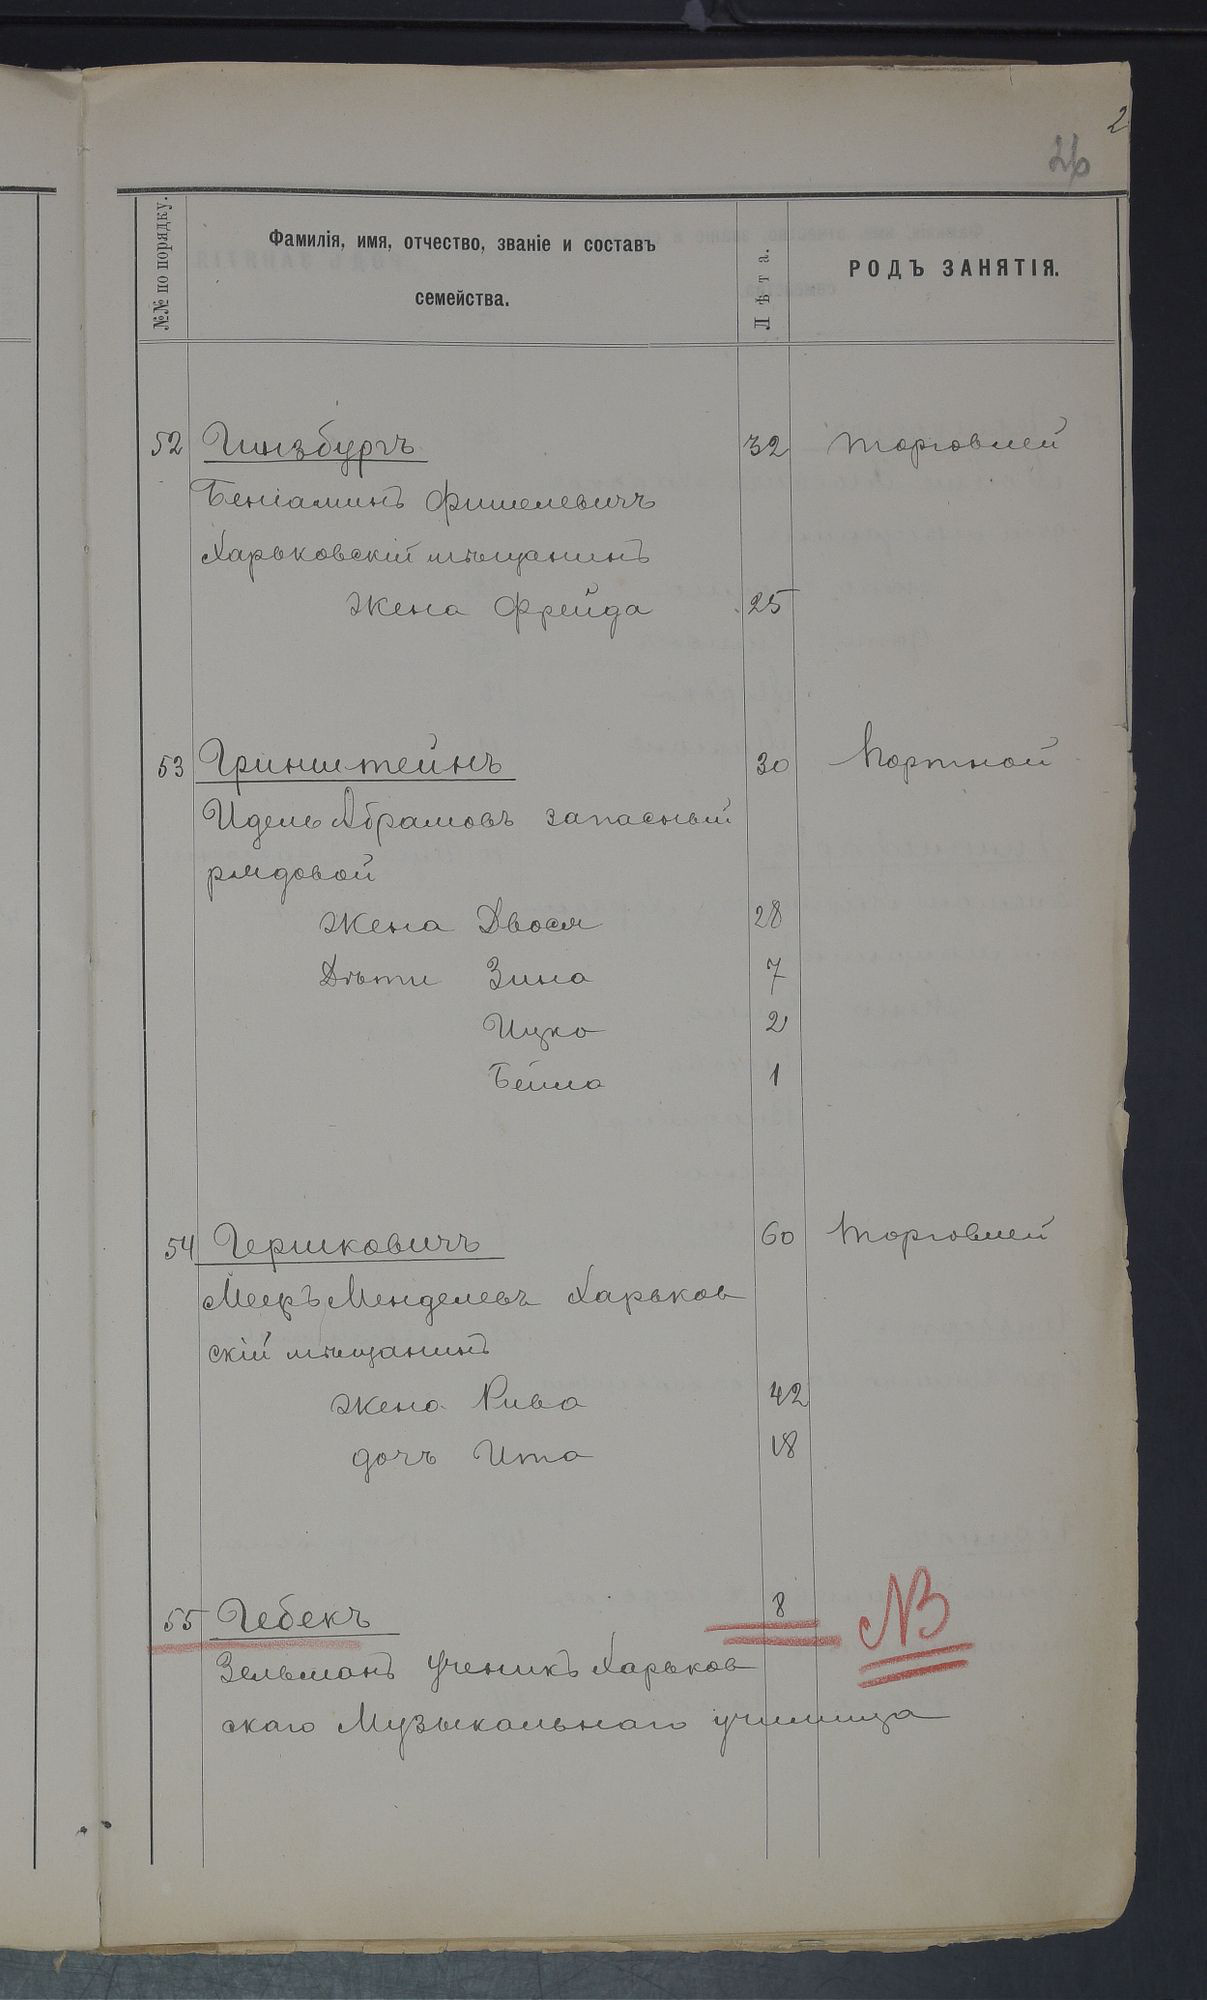 2
26
№№ по порядку.
Фамилія, имя, отчество, званіе и составъ
семейства.
Лѣта.
РОДЪ ЗАНЯТІЯ.
52 Гинзбургъ 32 торговлей
Беніаминъ Фишелевичъ
Харьковскій мѣщанинъ
Жена Фрейда 25
53 Гринштейнъ 30 Портной
Идель Абрамовъ запасный
рядовой
Жена Двося 28
Дѣти Зина 7
Ицко 2
Бейла 1
54 Гершковичъ 60 торговлей
Мееръ Менделевъ Харьков
скій мѣщанинъ
Жена Рива 42
дочь Ита 18
55 Гебекъ 8 NB
Зельманъ ученикъ Харьков
скаго Музыкальнаго училища